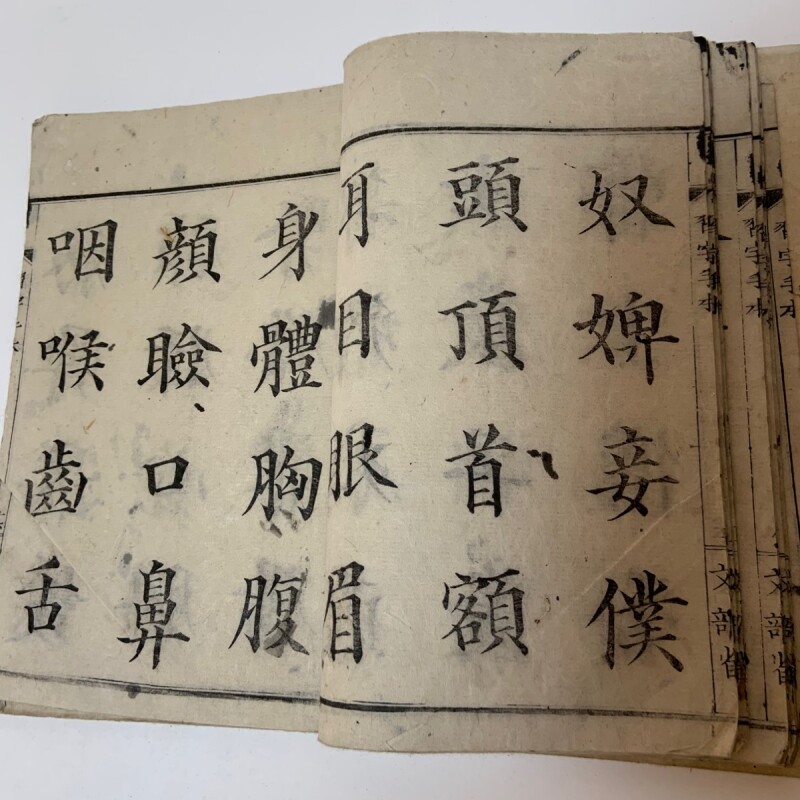 奴婢妾僕
頭頂首額
耳目眼眉
身體胸腹
顔臉口鼻
咽喉齒舌
習字手本
文部省
習字手本
文部省
習字手本
文部省